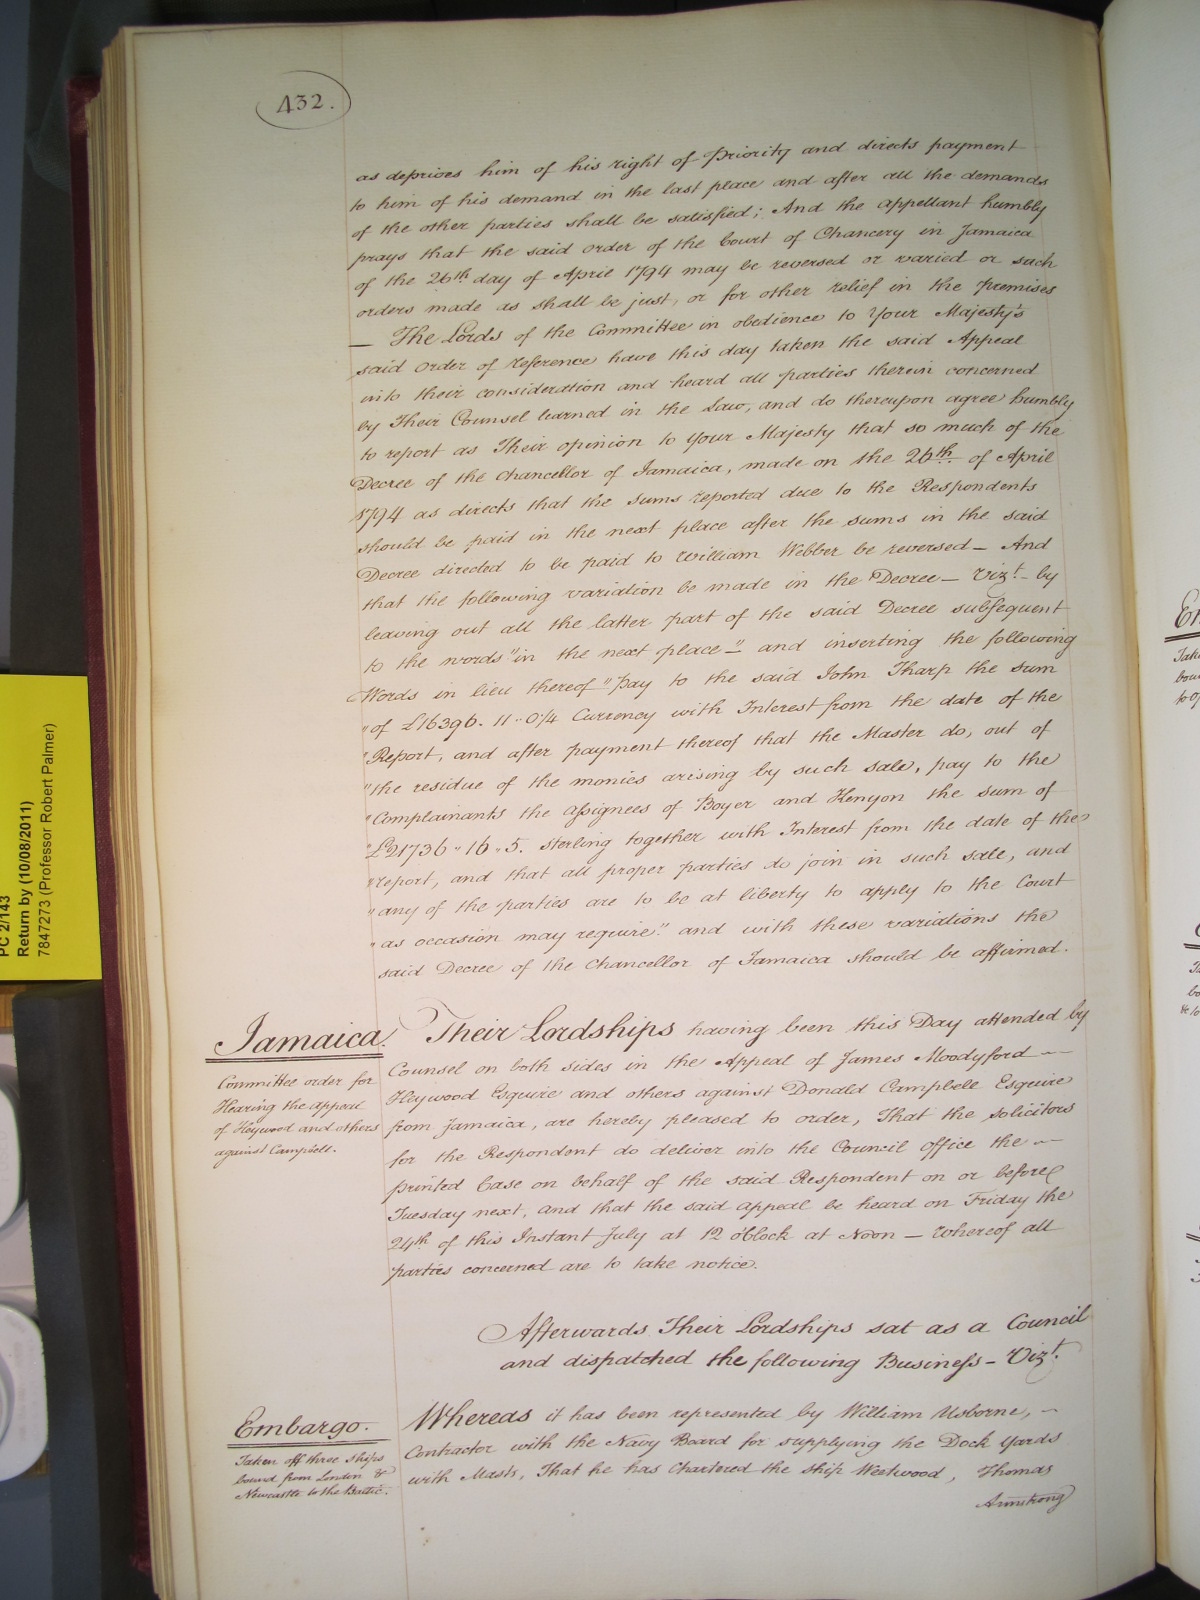 432.
as deprives him of his right of Priority and directs payment
to him of his demand in the last place and after all the demands
of the other parties shall be satisfied; And the appellant humbly
prays that the said order of the Court of Chancery in Jamaica
of the 26th day of April 1794 may be reversed or varied or such
orders made as shall be just, or for other relief in the premises
— The Lords of the Committee in obedience to Your Majesty's
said Order of reference have this day taken the said Appeal
into their consideration and heard all parties therein concerned
by Their Counsel learned in the Law, and do thereupon agree humbly
to report as Their opinion to Your Majesty that so much of the
Decree of the Chancellor of Jamaica, made on the 26th of April
1794 as directs that the sums reported due to the Respondents
should be paid in the next place after the sums in the said
Decree directed to be paid to William Webber be reversed — And
that the following variation be made in the Decree — Vizt. by
leaving out all the latter part of the said Decree subsequent
to the words "in the next place —" and inserting the following
Words in lieu thereof "Pay to the said John Tharp the sum
"of £16396. 11 .. 0¼ Currency with Interest from the date of the
"Report, and after payment thereof that the Master do, out of
"the residue of the monies arising by such sale, pay to the
"Complainants the Assignees of Boyer and Henyon the sum of
"£21736 .. 16 .. 5. sterling together with Interest from the date of the
"report, and that all proper parties do join in such sale, and
"any of the parties are to be at liberty to apply to the Court
"as occasion may require." and with these variations the
said Decree of the Chancellor of Jamaica should be affirmed.
Jamaica.
Committee order for
Hearing the appeal
of Heywood and others
against Campbell.
Their Lordships having been this Day attended by
Counsel on both sides in the Appeal of James Moodyford —
Heywood Esquire and others against Donald Campbell Esquire
from Jamaica, are hereby pleased to order, That the solicitors
for the Respondent do deliver into the Council office the —
printed Case on behalf of the said Respondent on or before
Tuesday next, and that the said appeal be heard on Friday the
24th of this Instant July at 12 o'Clock at Noon — Whereof all
parties concerned are to take notice.
Afterwards Their Lordships sat as a Council
and dispatched the following Business — Vizt.
Embargo.
Taken off three Ships
bound from London &
Newcastle to the Baltic.
Whereas it has been represented by William Usborne, —
Contractor with the Navy Board for supplying the Dock Yards
with Masts, That he has Chartered the ship Westwood, Thomas
Armstrong
PC 2/143
Return by (10/08/2011)
7847273 (Professor Robert Palmer)